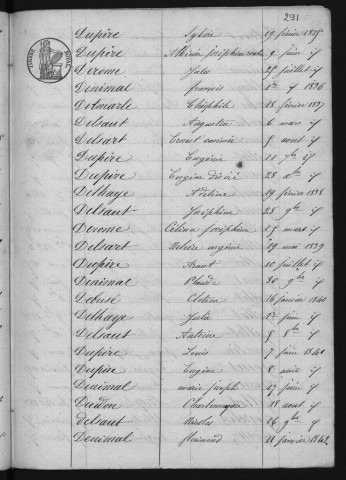 291
Dupire Sylvie 19 février 1835
Dupire Albinie Joséphine 9 juin if
Derome Jules 27 juillet if
Denimal françois 1er if 1836
Delmarle Théophile 18 février 1837
Delsaut Augustin 6 mars if
Delsart Ernest 5 aout if
Dupire Eugénie 11 7bre if
Dupire Eugène 28 if
Delhaye Adeline 19 février 1838
Delsaut Joséphine 28 9bre if
Derome Célina Joséphine 25 mars if
Delsart Victoire 29 mai 1839
Dupire 10 juillet if
Denimal Claude 20 9bre if
Debusé Céline 16 janvier 1840
Delhaye Julie 1er juin if
Delsaut Antoine 5 8bre if
Dupire Louis 7 juin 1840
Dupire Eugène 8 aout if
Denimal marie Joseph 17 juin if
Duidon Charlemagne 18 aout if
Delsaut 26 9bre if
Denimal florimond 21 janvier 1842